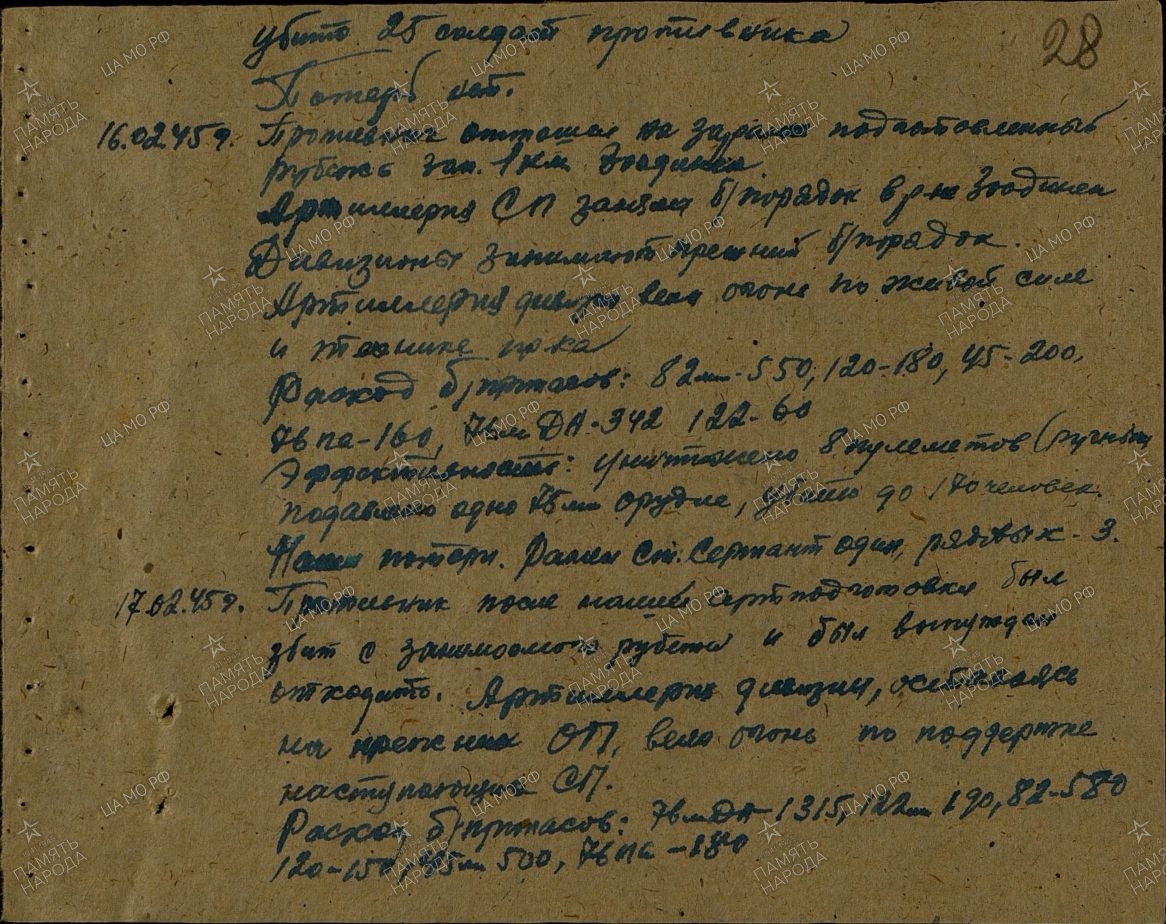 28
убито 25 солдат противника
Потерь нет.
16.02.45г. Противник отошел на заранее подготовленный
рубеж зап. 1 км
Артиллерия СП заняла б/порядок в р-не
Дивизионы занимают прежний б/порядок.
Артиллерия дивизии вела огонь по живой силе
и технике пр-ка
Расход б/припасов: 82мм-550, 120-180, 45-200,
76 па-160, 76мм ДА-342 122-60
Эффективность: уничтожено 8 пулеметов (ручных
подавлено одно 75мм орудие, убито до 170 человек.
Наши потери. Ранен ст. сержант один, рядовых-3.
17.02.45г. Противник после нашей артподготовки был
збит с занимаемого рубежа и был вынужден
отходить. Артиллерия дивизии, оставаясь
на прежних ОП, вела огонь по поддержке
наступающих СП.
Расход б/припасов: 76мм ДА-1315, 122мм 190, 82-580
120-150, 45мм 500, 76 па-180
ПАМЯТЬ НАРОДА
ЦА МО РФ